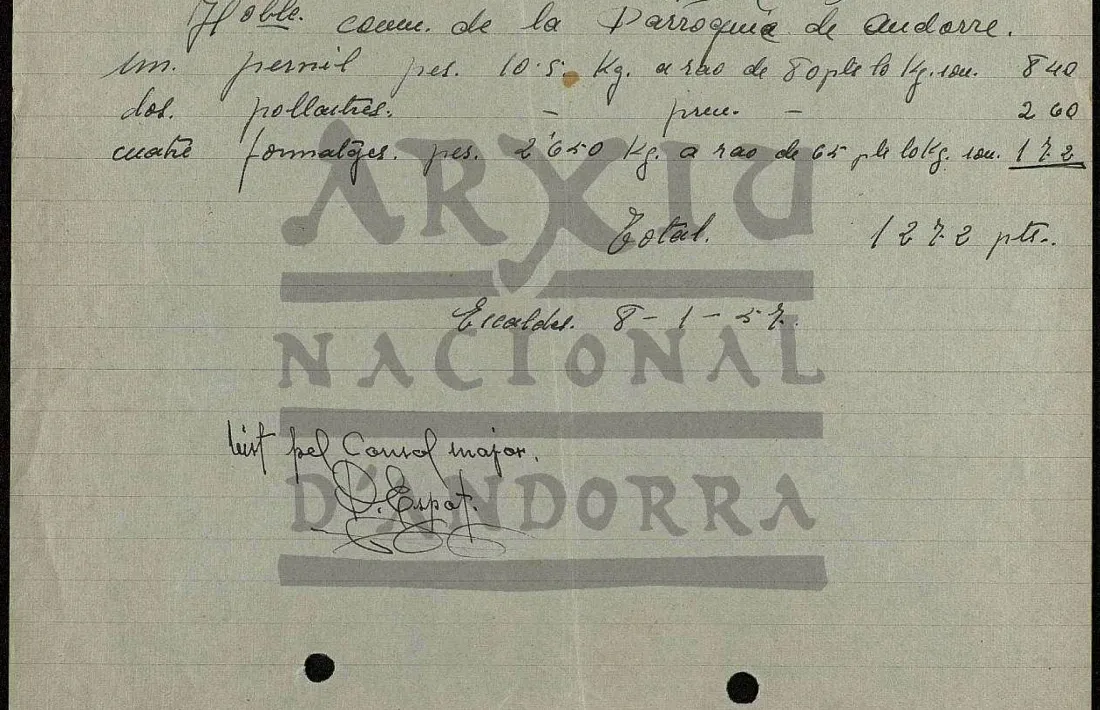 Hoble. comú. de la Parroquia de Andorre.
un. pernil pes. 10.5. Kg. a rao de 80 pte lo Kg. son. 840
dos. pollastres. - preu. - 260
cuatre formatges. pes. 2'650 Kg. a rao de 65 pte lo Kg. son. 172
Total. 1272 pts.
Escaldes. 8-1-57.
Vist pel Consol major.
D. Espot.
ARXIU
NACIONAL
D'ANDORRA